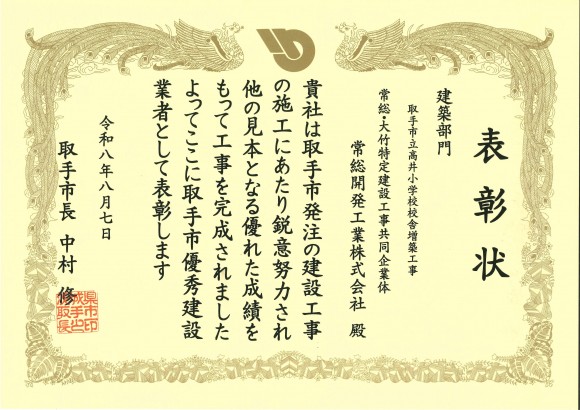 表彰状
建築部門
取手市立高井小学校校舎増築工事
常総・大竹特定建設工事共同企業体
常総開発工業株式会社 殿
貴社は取手市発注の建設工事
の施工にあたり鋭意努力され
他の見本となる優れた成績を
もって工事を完成されました
よってここに取手市優秀建設
業者として表彰します
令和八年八月七日
取手市長 中村 修